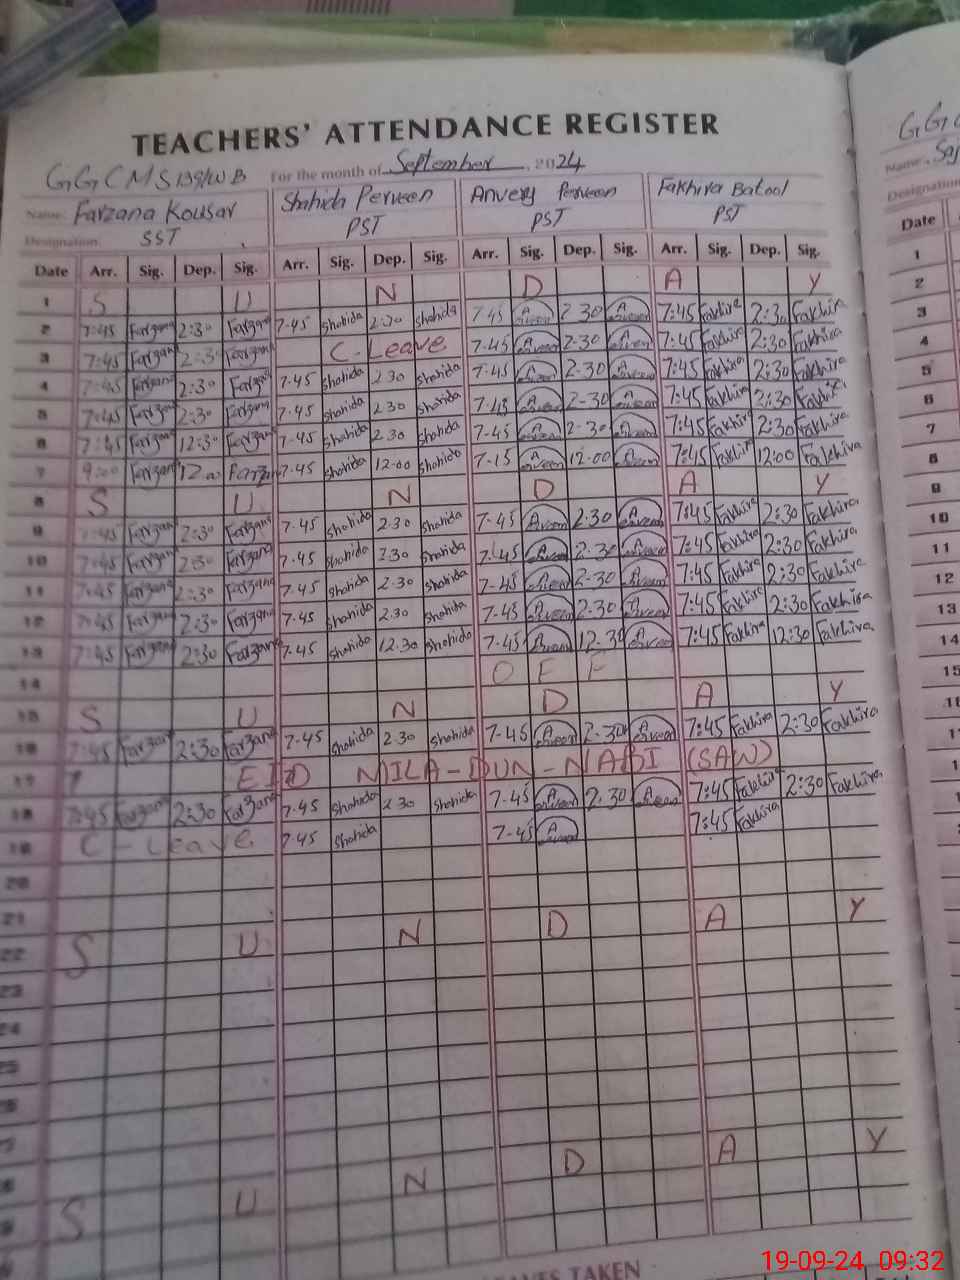 TEACHERS' ATTENDANCE REGISTER
GGCMS 139/WB For the month of September, 2024
Name: Farzana Kousar Shahida Perveen Anvery Perveen Fakhira Batool
Designation: SST PST PST PST
Date Arr. Sig. Dep. Sig. Arr. Sig. Dep. Sig. Arr. Sig. Dep. Sig. Arr. Sig. Dep. Sig.
1 S U N D A Y
2 7:45 Farzana 2:30 Farzana 7-45 Shahida 2:30 Shahida 7-45 2-30 7:45 Fakhira 2:30 Fakhira
3 7:45 Farzana 2:30 Farzana C-Leave 7-45 2-30 7:45 Fakhira 2:30 Fakhira
4 7:45 Farzana 2:30 Farzana 7-45 Shahida 2.30 Shahida 7-45 2-30 7:45 Fakhira 2:30 Fakhira
5 7:45 Farzana 2:30 Farzana 7-45 Shahida 2.30 Shahida 7-45 2-30 7:45 Fakhira 2:30 Fakhira
6 7:45 Farzana 12:30 Farzana 7-45 Shahida 2.30 Shahida 7-45 2-30 7:45 Fakhira 2:30 Fakhira
7 9:00 Farzana 12:00 Farzana 7-45 Shahida 12-00 Shahida 7-15 12-00 7:45 Fakhira 12:00 Fakhira
8 S U N D A Y
9 7:45 Farzana 2:30 Farzana 7-45 Shahida 2-30 Shahida 7-45 2:30 7:45 Fakhira 2:30 Fakhira
10 7:45 Farzana 2:30 Farzana 7-45 Shahida 2.30 Shahida 7-45 2-30 7:45 Fakhira 2:30 Fakhira
11 7:45 Farzana 2:30 Farzana 7-45 Shahida 2-30 Shahida 7-45 2-30 7:45 Fakhira 2:30 Fakhira
12 7:45 Farzana 2:30 Farzana 7-45 Shahida 2.30 Shahida 7-45 2-30 7:45 Fakhira 2:30 Fakhira
13 7:45 Farzana 2:30 Farzana 7-45 Shahida 12.30 Shahida 7-45 12-30 7:45 Fakhira 12:30 Fakhira
14 O F F
15 S U N D A Y
16 7:45 Farzana 2:30 Farzana 7-45 Shahida 2.30 Shahida 7-45 2-30 7:45 Fakhira 2:30 Fakhira
17 EID MILA-DUN-NABI (SAW)
18 7:45 Farzana 2:30 Farzana 7-45 Shahida 2.30 Shahida 7-45 2.30 7:45 Fakhira 2:30 Fakhira
19 C Leave 7-45 Shahida 7-45 7:45 Fakhira
20
21
22 S U N D A Y
23
24
25
26
S U N D A Y
LEAVES TAKEN
Name:
Designation
Date
1
2
3
4
5
6
7
8
9
10
11
12
13
14
15
19-09-24 09:32